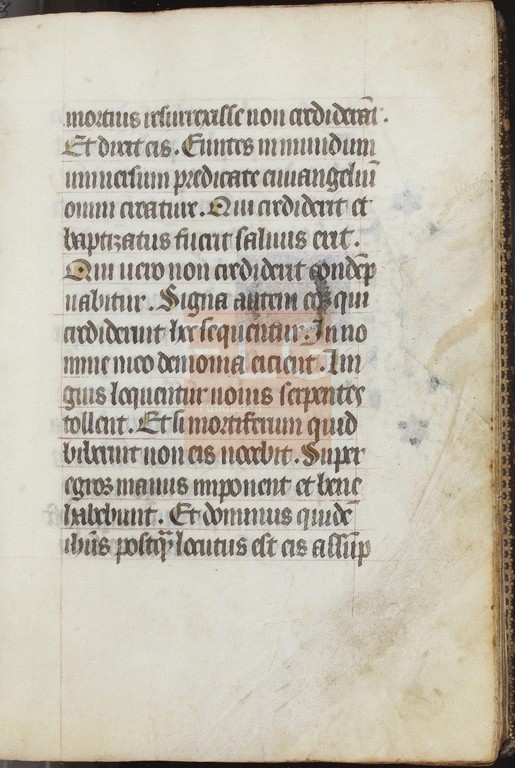 mortuis resurrexisse non crediderāt.
Et dixit eis. Euntes in mundum
uniuersum predicate euuangeliū
omni creature. Qui crediderit et
baptizatus fuerit saluus erit.
Qui uero non crediderit condēp
nabitur. Signa autem eos qui
crediderint hec sequentur. In no
mine meo demonia eicient. lin
guis loquentur nouis serpentes
tollent. Et si mortiferum quid
biberint non eis nocebit. Super
egros manus imponent et bene
habebunt. Et dominus quidē
ihūs postq̄ locutus est eis assūp